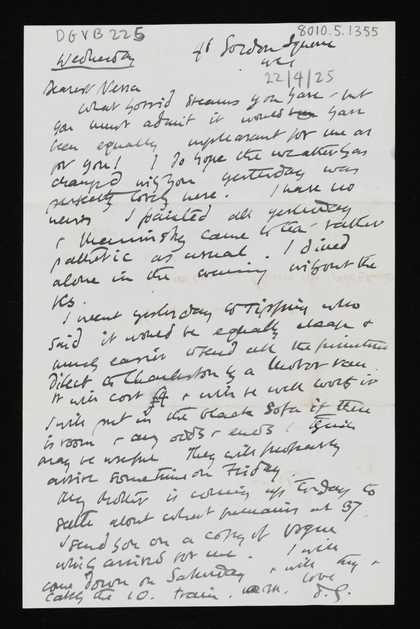 DGVB 225
8010.5.1355
Wednesday
46 Gordon Square
WC1
22/4/25
Dearest Nessa
What horrid dreams you have - but
you must admit it would have
been equally unpleasant for me as
for you! I do hope the weather has
changed with you yesterday was
perfectly lovely here. I have no
news, I painted all yesterday
& came to tea - rather
pathetic as usual. I dined
alone in the evening without the
Ks.
I went yesterday to Tipping who
said it would be equally cheap &
much easier to send all the furniture
direct to Charleston by a motor van.
It will cost & will be well worth it
I will put in the black sofa if there
is room & any odds & ends I think
may be useful. They will probably
arrive sometime on Friday.
My mother is coming up today to
settle about what remains at 37.
I send you on a copy of Vogue
which arrived for me. I will
come down on Saturday & will try &
catch the 10. train. love
D.G.